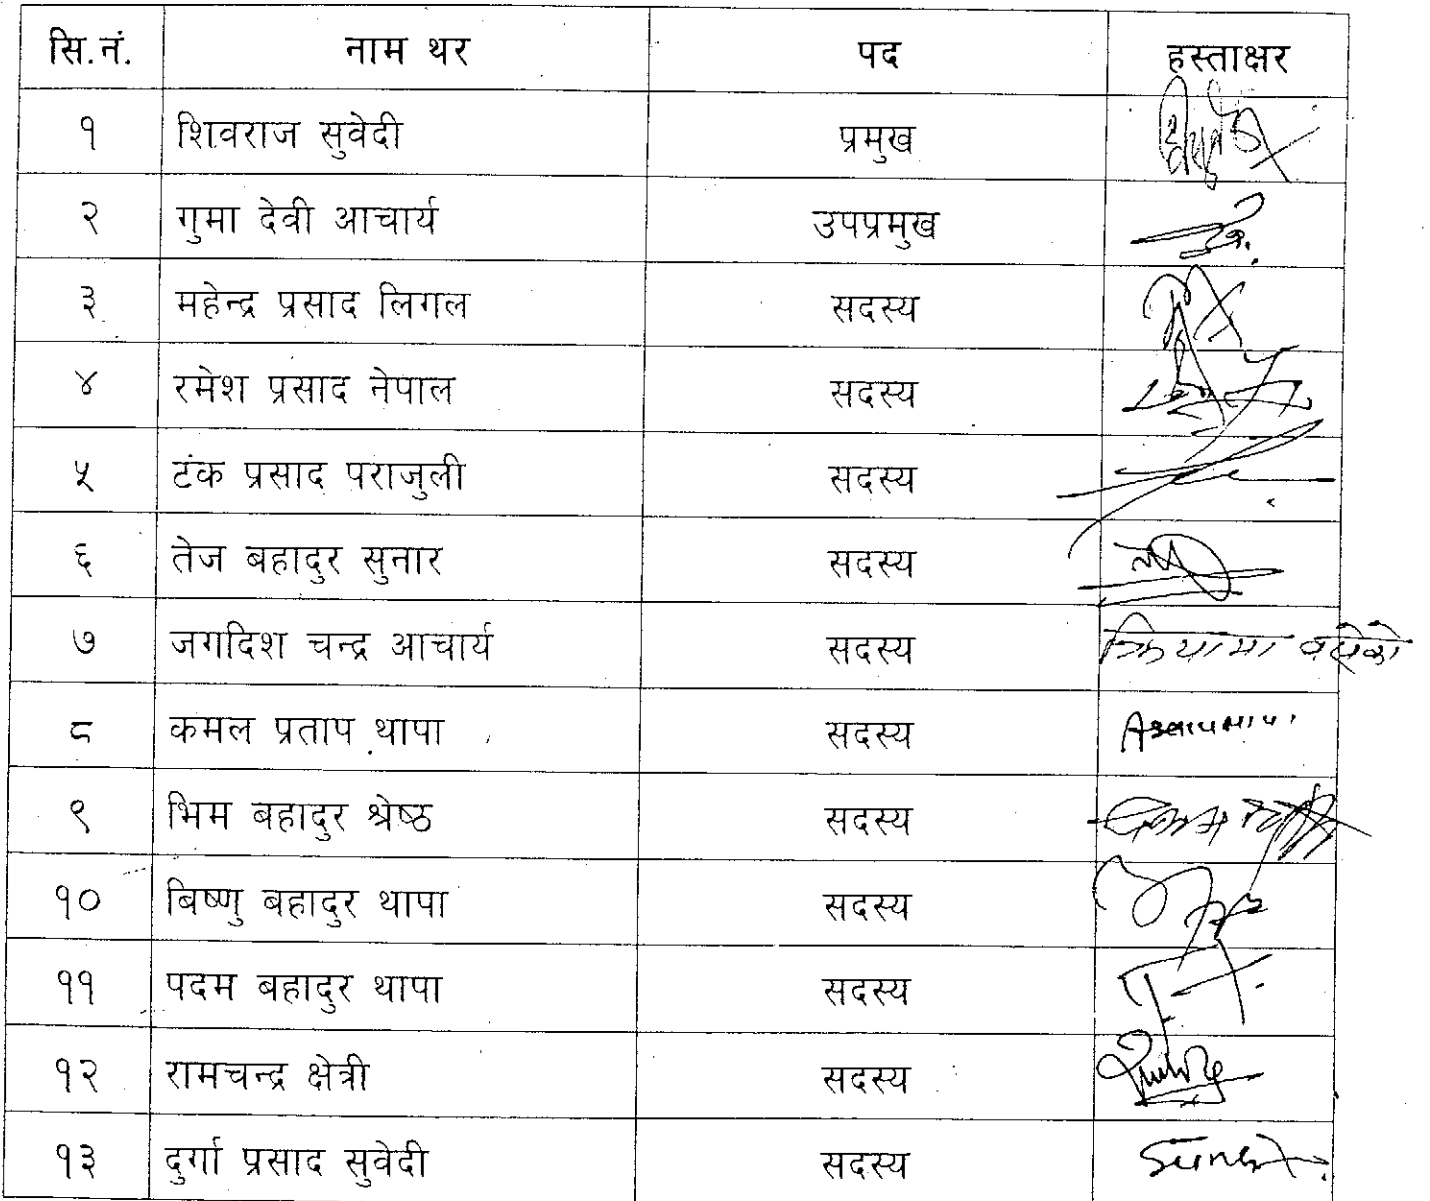 सि.नं. नाम थर पद हस्ताक्षर
१ शिवराज सुवेदी प्रमुख
२ गुमा देवी आचार्य उपप्रमुख
३ महेन्द्र प्रसाद लिगल सदस्य
४ रमेश प्रसाद नेपाल सदस्य
५ टंक प्रसाद पराजुली सदस्य
६ तेज बहादुर सुनार सदस्य
७ जगदिश चन्द्र आचार्य सदस्य क्रियामा बसेको
८ कमल प्रताप थापा सदस्य
९ भिम बहादुर श्रेष्ठ सदस्य
१० बिष्णु बहादुर थापा सदस्य
११ पदम बहादुर थापा सदस्य
१२ रामचन्द्र क्षेत्री सदस्य
१३ दुर्गा प्रसाद सुवेदी सदस्य